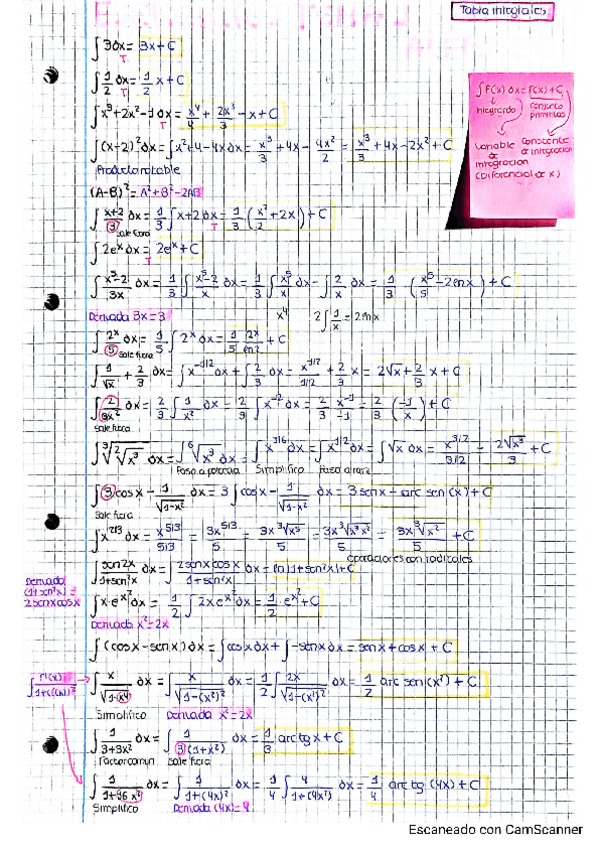 Tabla integrales
∫ 3dx = 3x + C
∫ 1/2 dx = 1/2 x + C
∫ x³+2x²-1 dx = x⁴/4 + 2x³/3 - x + C
∫ F(x) dx = F(x) + C
Integrando
Conjunto primitivas
Variable de integración (Diferencial de x)
Constante de integración
∫ (x-2)² dx = ∫ x²+4-4x dx = x³/3 + 4x - 4x²/2 = x³/3 + 4x - 2x² + C
Producto notable
(A-B)² = A² + B² - 2AB
∫ x+2/3 dx = 1/3 ∫ x+2 dx = 1/3 (x²/2 + 2x) + C
Sale fuera
∫ 2eˣ dx = 2eˣ + C
∫ x⁵-2/3x dx = 1/3 ∫ x⁵-2/x dx = 1/3 ∫ x⁵/x dx - ∫ 2/x dx = 1/3 (x⁵/5 - 2ln x) + C
Derivada 3x = 3
x⁴
2∫ 1/x = 2ln x
∫ 2ˣ/5 dx = 1/5 ∫ 2ˣ dx = 1/5 2ˣ/ln2 + C
Sale fuera
∫ 1/√x + 2/3 dx = ∫ x^-1/2 dx + ∫ 2/3 dx = x^1/2/1/2 + 2/3 x = 2√x + 2/3 x + C
∫ 2/3x² dx = 2/3 ∫ 1/x² dx = 2/3 ∫ x⁻² dx = 2/3 x⁻¹/-1 = 2/3 (-1/x) + C
Sale fuera
∫ ³√²√x³ dx = ∫ ⁶√x³ dx = ∫ x^3/6 dx = ∫ x^1/2 dx = ∫ √x dx = x^3/2/3/2 = 2√x³/3 + C
Paso a potencia Simplifico Paso a raíz
∫ 3cos x - 1/√1-x² dx = 3 ∫ cos x - 1/√1-x² dx = 3 sen x - arc sen (x) + C
Sale fuera
∫ x^2/3 dx = x^5/3/5/3 = 3x^5/3/5 = 3x ³√x⁵/5 = 3x ³√x³x²/5 = 3x ³√x²/5 + C
Operaciones con radicales
∫ sen2x/1+sen²x dx = ∫ 2senx cosx/1+sen²x dx = ln|1+sen²x| + C
Derivada (1+sen²x) = 2senxcosx
∫ x·e^x² dx = 1/2 ∫ 2x e^x² dx = 1/2 · e^x² + C
Derivada x² = 2x
∫ (cosx - senx) dx = ∫ cosx dx + ∫ -senx dx = senx + cosx + C
∫ x/√1-x⁴ dx = ∫ x/√1-(x²)² dx = 1/2 ∫ 2x/√1-(x²)² dx = 1/2 arc sen (x²) + C
Simplifico Derivada x² = 2x
∫ 1/3+3x² dx = ∫ 1/3(1+x²) dx = 1/3 arctg x + C
Factor común Sale fuera
∫ 1/1+16x² dx = ∫ 1/1+(4x)² dx = 1/4 ∫ 4/1+(4x²) dx = 1/4 arc tg (4x) + C
Simplifico Derivada (4x) = 4
Escaneado con CamScanner